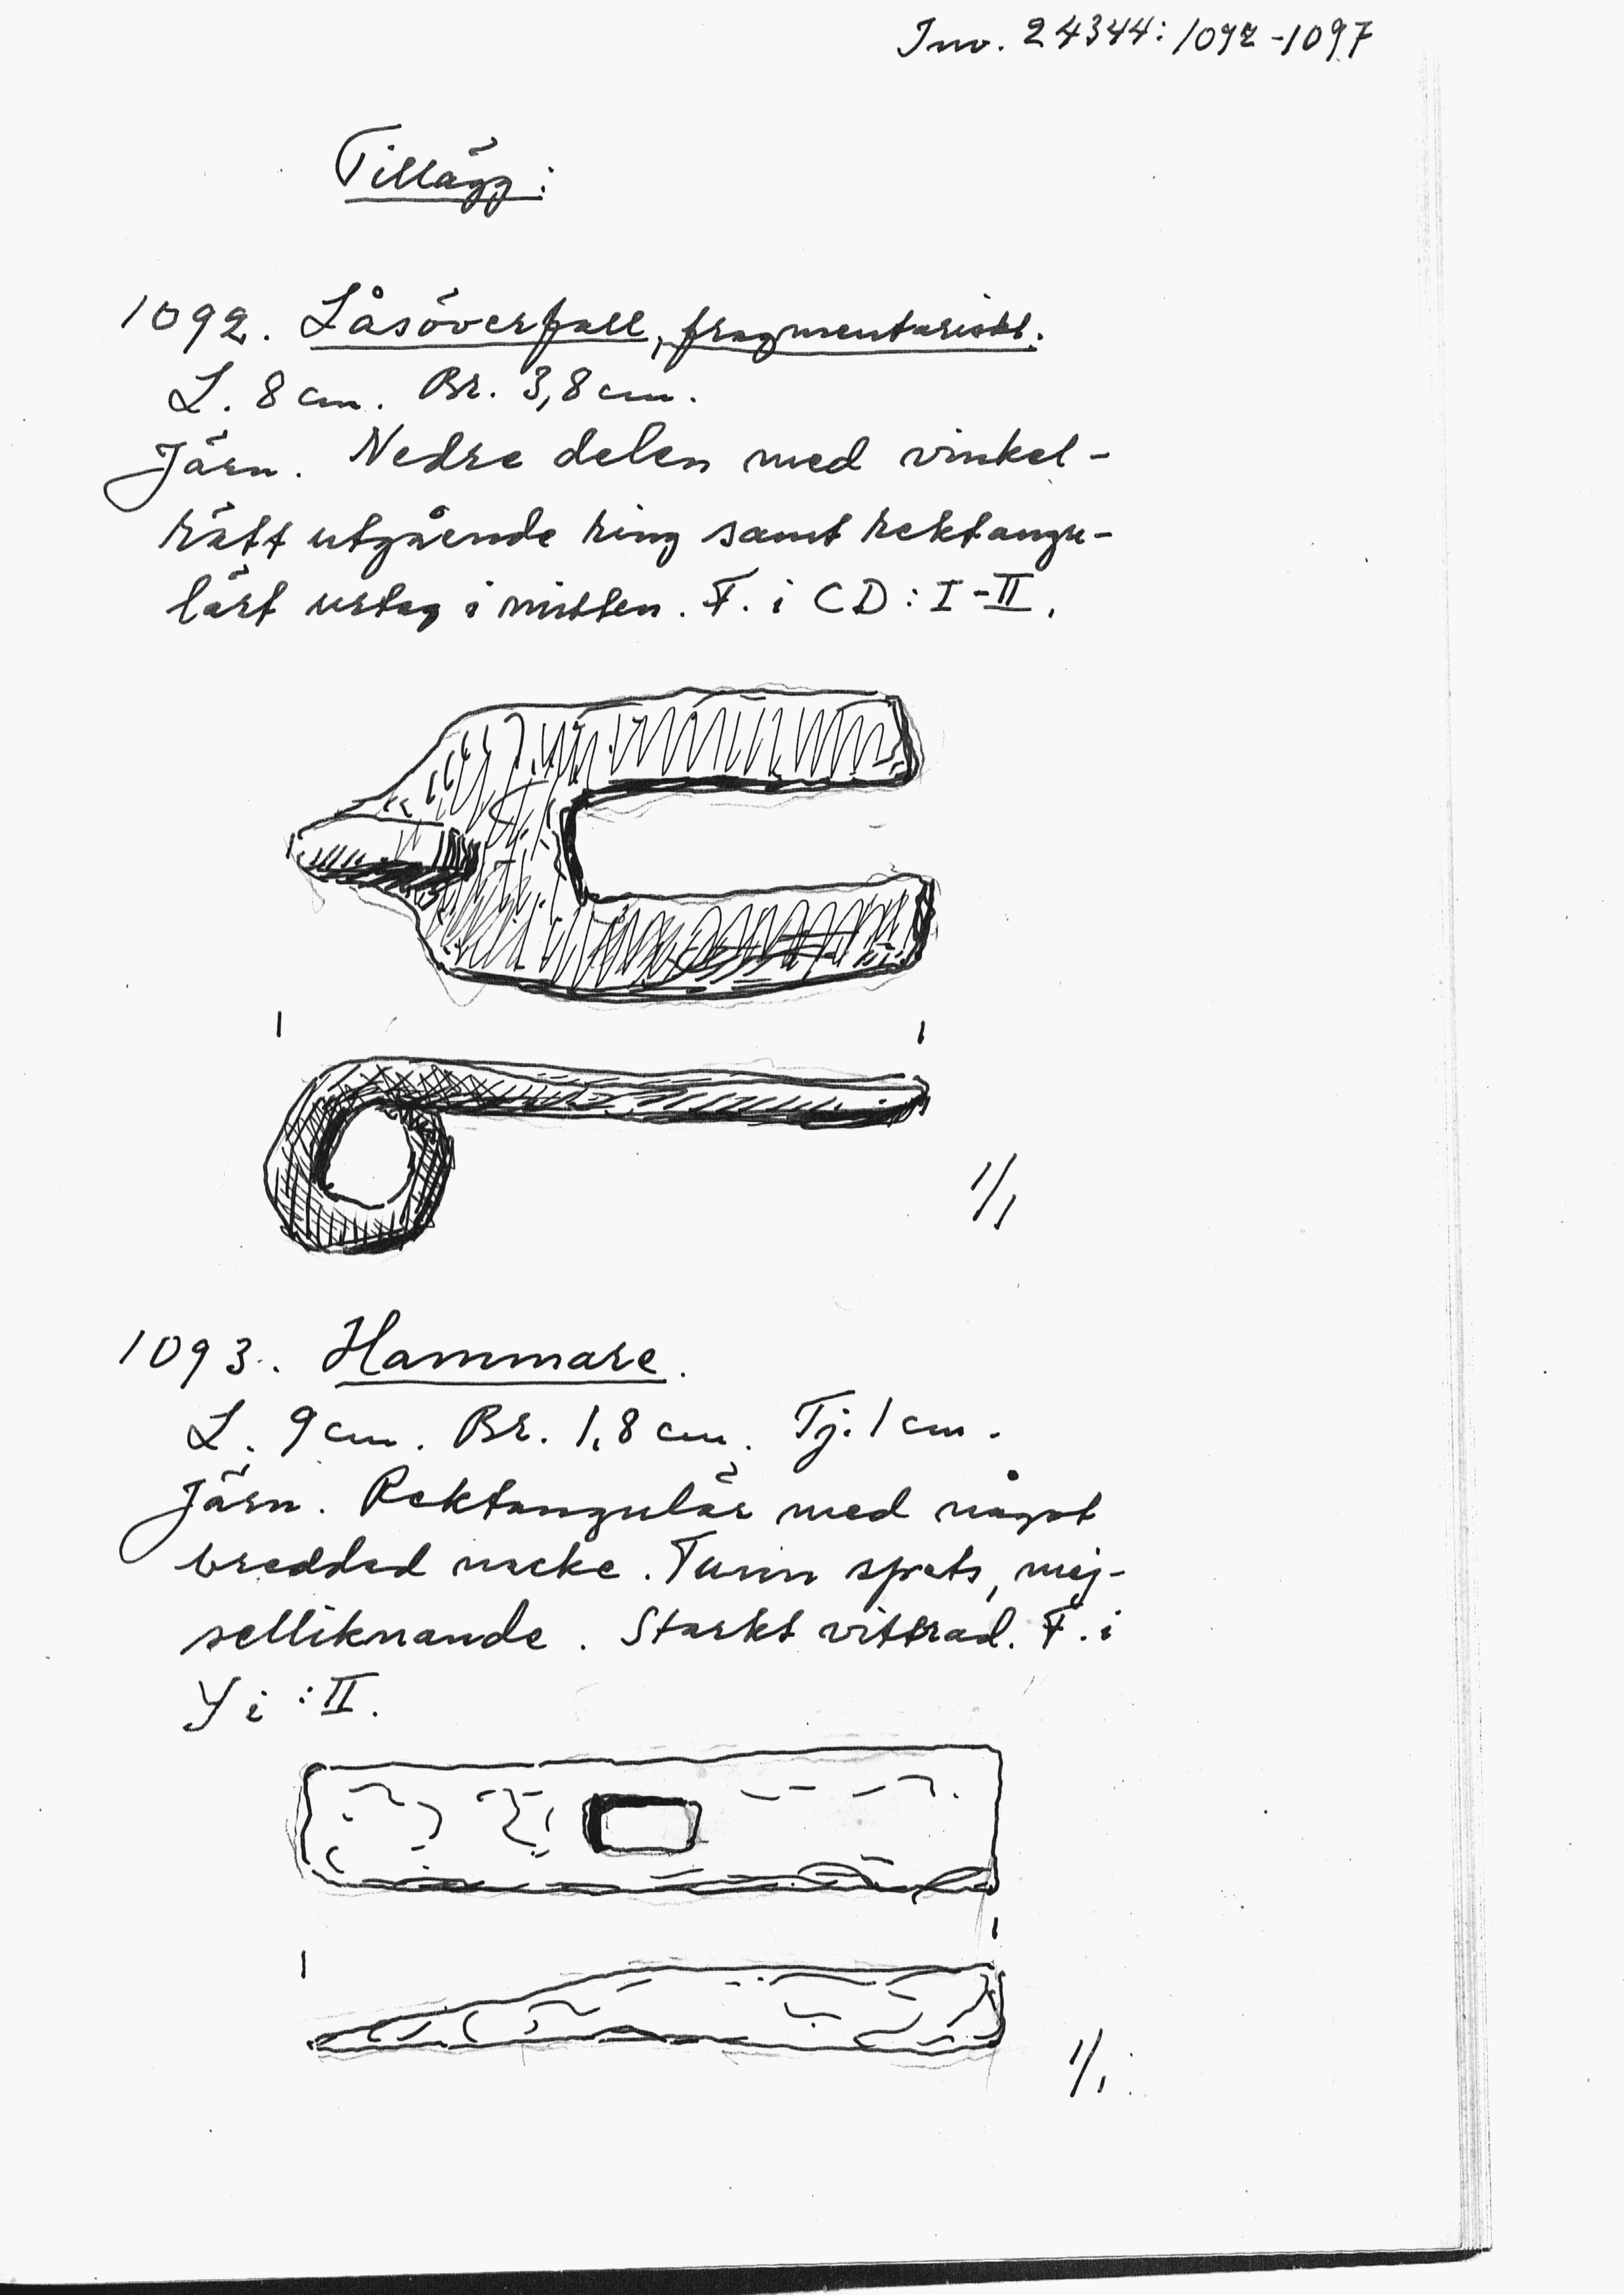 Inv. 24344:1092-1097
Tillägg:
1092. Låsöverfall, fragmentariskt.
L. 8 cm. Br. 3,8 cm.
Järn. Nedre delen med vinkel-
rätt utgående ring samt rektangu-
lärt urtag i mitten. F. i CD: I-II.
1/1
1093. Hammare.
L. 9 cm. Br. 1,8 cm. Tj. 1 cm.
Järn. Rektangulär med något
breddad nacke. Tunn spets, mej-
selliknande. Starkt vittrad. F. i
Y i : II.
1/1